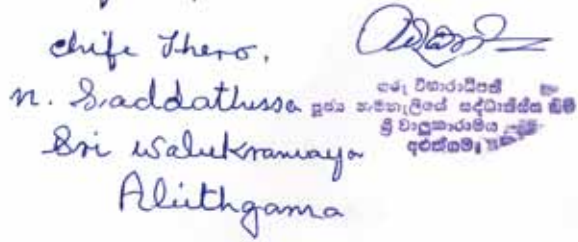 chife Thero,
n. Saddathissa
Sri Walukramaya
Aluthgama
ගරු විහාරාධිපති
පූජ්‍ය සද්ධාතිස්ස හිමි
ශ්‍රී වාලුකාරාමය
අළුත්ගම